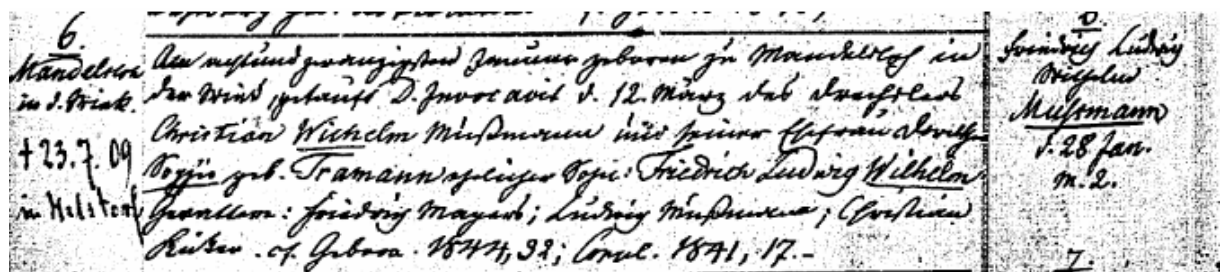 6.
Mandelsloh
in d. Wiek.
+ 23.7.09
in Helstorf
Am achtundzwanzigsten Januar geboren zu Mandelsloh in
der Wiek, getauft D. Invocavit d. 12. März des Drechslers
Christian Wilhelm Mußmann und seiner Ehefrau Dorothee
Sophie geb. Tramann ehelicher Sohn: Friedrich Ludwig Wilhelm
Gevattern: Friedrich Mayers; Ludwig Mußmann; Christian
cf. Gebora. 1844, 32; Copul. 1841, 17.-
6.
Friedrich Ludwig
Wilhelm
Mussmann
d. 28 Jan.
m. 2.
7.